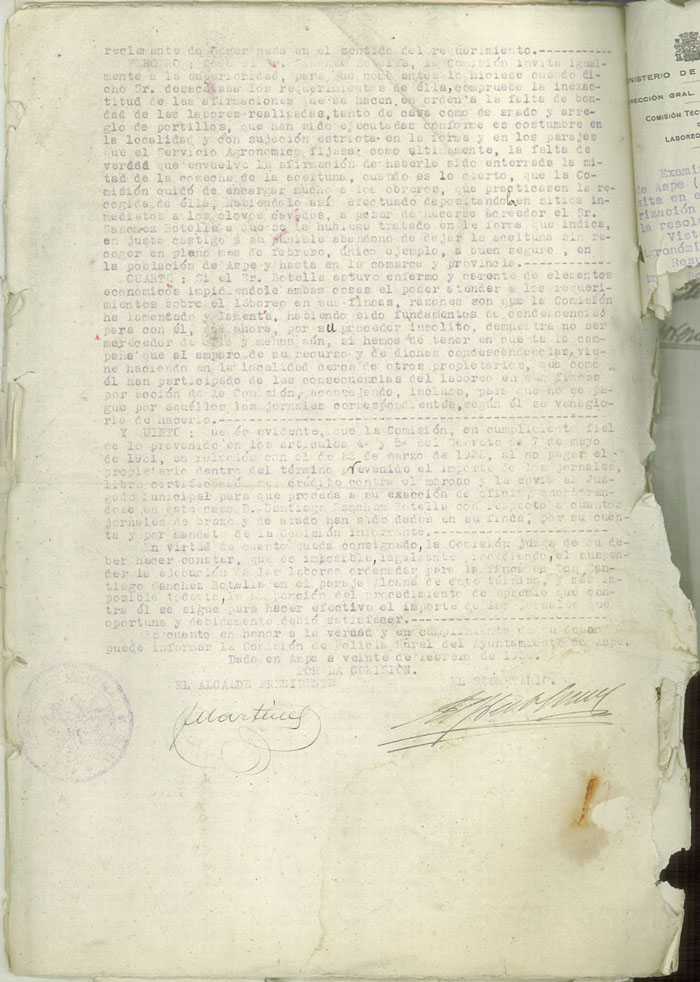 reclamante de hacer nada en el sentido del requerimiento.-----------
TERCERO : Como el Sr. Sanchez Botella, la Comisión invita igual-
mente a la superioridad, para que como antes lo hiciese cuando di-
cho Sr. desacataba los requerimientos de élla, compruebe la inexac-
titud de las afirmaciones que se hacen en orden a la falta de bon-
dad de las labores realizadas, tanto de cava como de arado y arre-
glo de portillos, que han sido ejecutadas conforme es costumbre en
la localidad y con sujeción estricta en la forma y en los parajes
que el Servicio Agronómico fijase; como ultimamente, la falta de
verdad que envuelve la afirmación de haberle sido enterrada la mi-
tad de la cosecha de la aceituna, cuando es lo cierto, que la Co-
misión cuidó de encargar mucho a los obreros, que practicasen la re-
cogida de élla, habiéndolo así efectuado depositandola en sitios in-
mediatos a los olivos cavados, a pesar de hacerse acreedor el Sr.
Sanchez Botella a que se la hubiese tratado en la forma que indica,
en justo castigo a su punible abandono de dejar la aceituna sin re-
coger en pleno mes de febrero, único ejemplo, a buen seguro, en
la población de Aspe y hasta en la comarca y provincia.-----------
CUARTO : Si el Sr. Botella estuvo enfermo y carente de elementos
economicos impidiendole ambas cosas el poder atender a los requeri-
mientos sobre el laboreo en sus fincas, razones son que la Comisión
ha lamentado y lamenta, habiendo sido fundamentos de condescencias
para con él, que ahora, por su proceder insolito, demuestra no ser
merecedor de y menos aún, si hemos de tener en cuenta la cam-
paña que al amparo de su recurso y de dichas condescendencias, vie-
ne haciendo en la localidad cerca de otros propietarios, que como
él han participado de las consecuencias del laboreo en sus fincas
por acción de la Comisión, aconsejando, incluso, para que no se pa-
gue por aquéllos los jornales correspondientes, según él se vanaglo-
ria de hacerlo.-----------
Y QUINTO : Que es evidente, que la Comisión, en cumplimiento fiel
de lo prevenido en los articulos 4º y 5º del Decreto de 7 de mayo
de 1931, en relación con el de de marzo de al no pagar el
propietario dentro del término prevenido el importe de los jornales,
libra certificación del crédito contra el moroso y la envía al Juz-
gado Municipal para que proceda a su exacción de oficio, encontran-
dose en este caso D. Santiago Sanchez Botella con respecto a cuantos
jornales de brazo y de arado han sido dados en su finca, por su cuen-
ta y por mandato de la Comisión informante.-----------
En virtud de cuanto queda consignado, la Comisión juzga de su de-
ber hacer constar, que es imposible, el suspen-
der la ejecución de los laboreos ordenados para la finca de Don San-
tiago Sanchez Botella en el paraje Alcaná de este término, y más im-
posible todavia, la suspensión del procedimiento de apremio que con-
tra él se sigue para hacer efectivo el importe de los jornales que
oportuna y debidamente debió satisfacer.-----------
Es cuanto en honor a la verdad y en cumplimiento de su deber
puede informar la Comisión de Policía Rural del Ayuntamiento de Aspe.
Dado en Aspe a veinte de febrero de
POR LA COMISIÓN.
EL ALCALDE PRESIDENTE EL SECRETARIO,
JMartinez
MINISTERIO DE
DIRECCIÓN GRAL.
COMISIÓN TEC
LABOREO
Exami
de Aspe
sita en e
rización
la resol
Vist
Agronómic
Resu